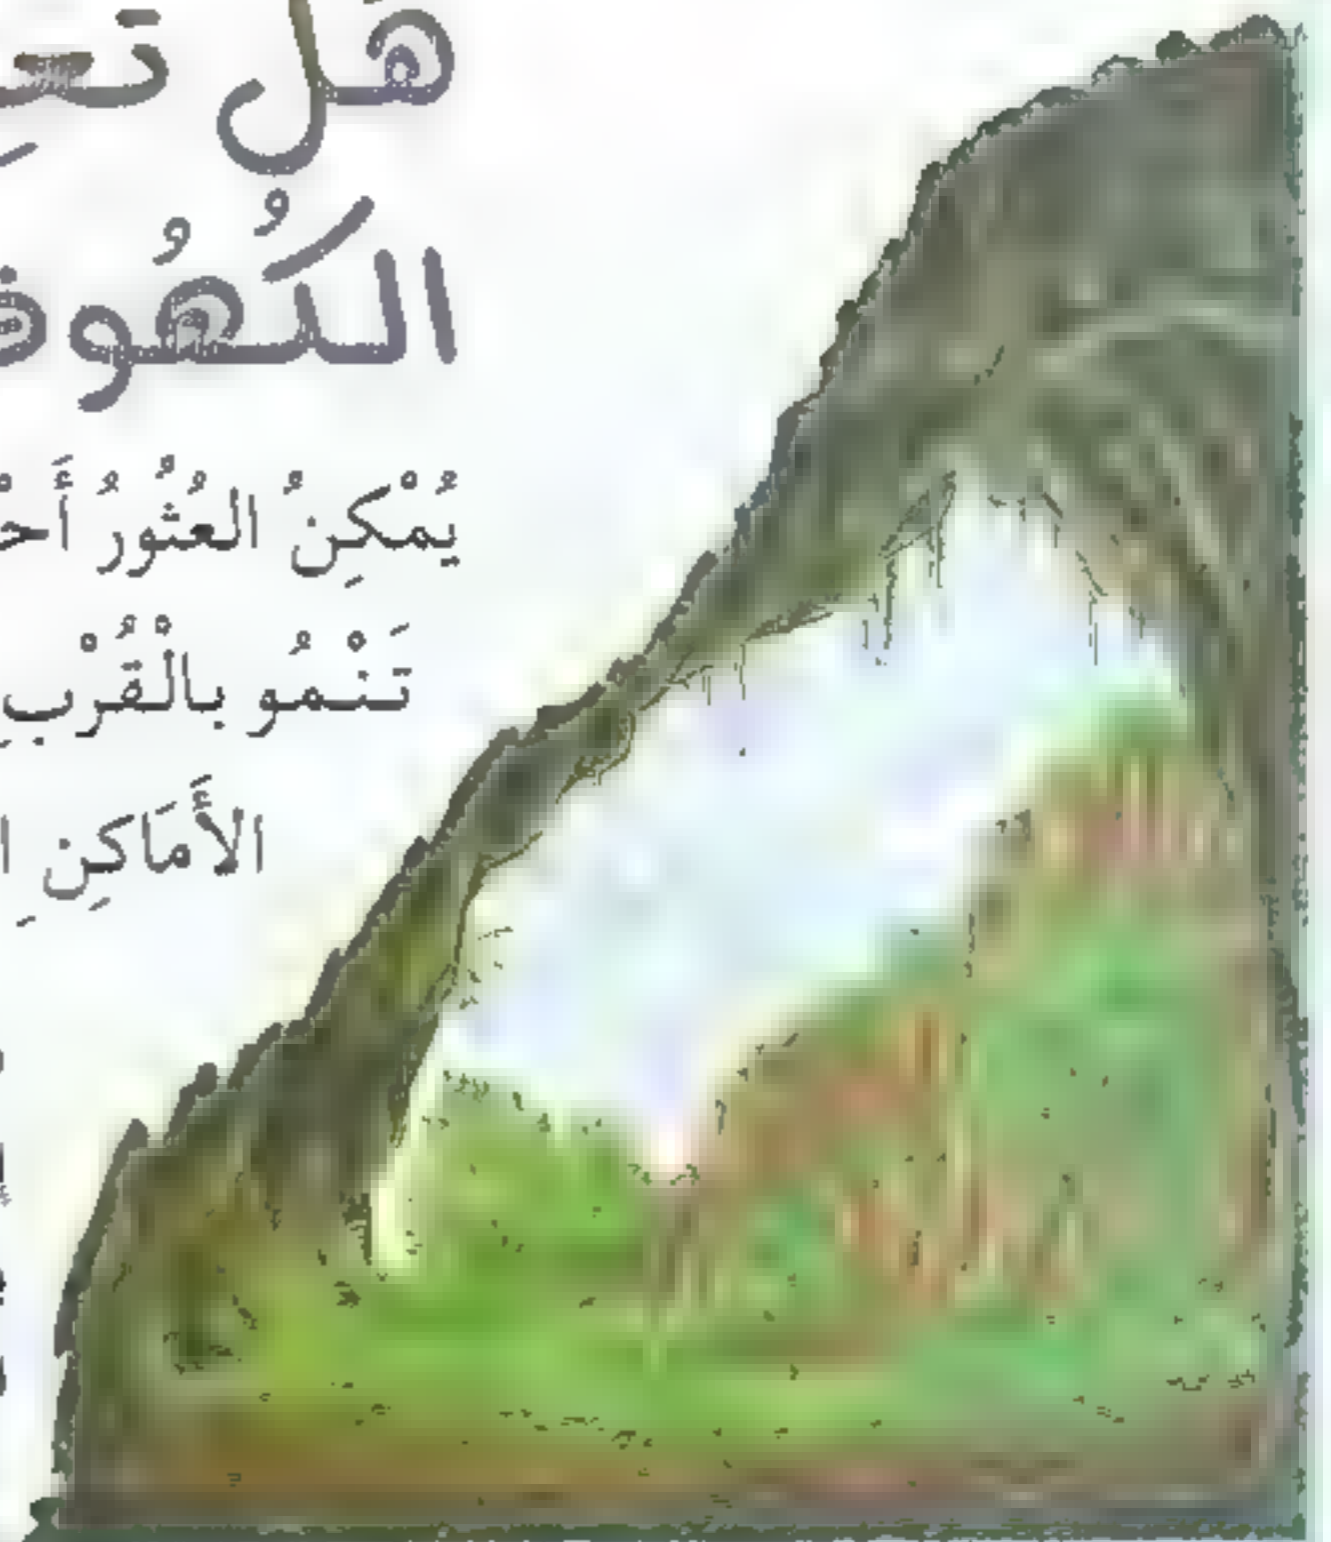 هَل تَعِـ
الكُهُوف
يُمْكِنُ العُثُورُ أَحْـ
تَنْمُو بالْقُرْبِ
الأَمَاكِنِ ا